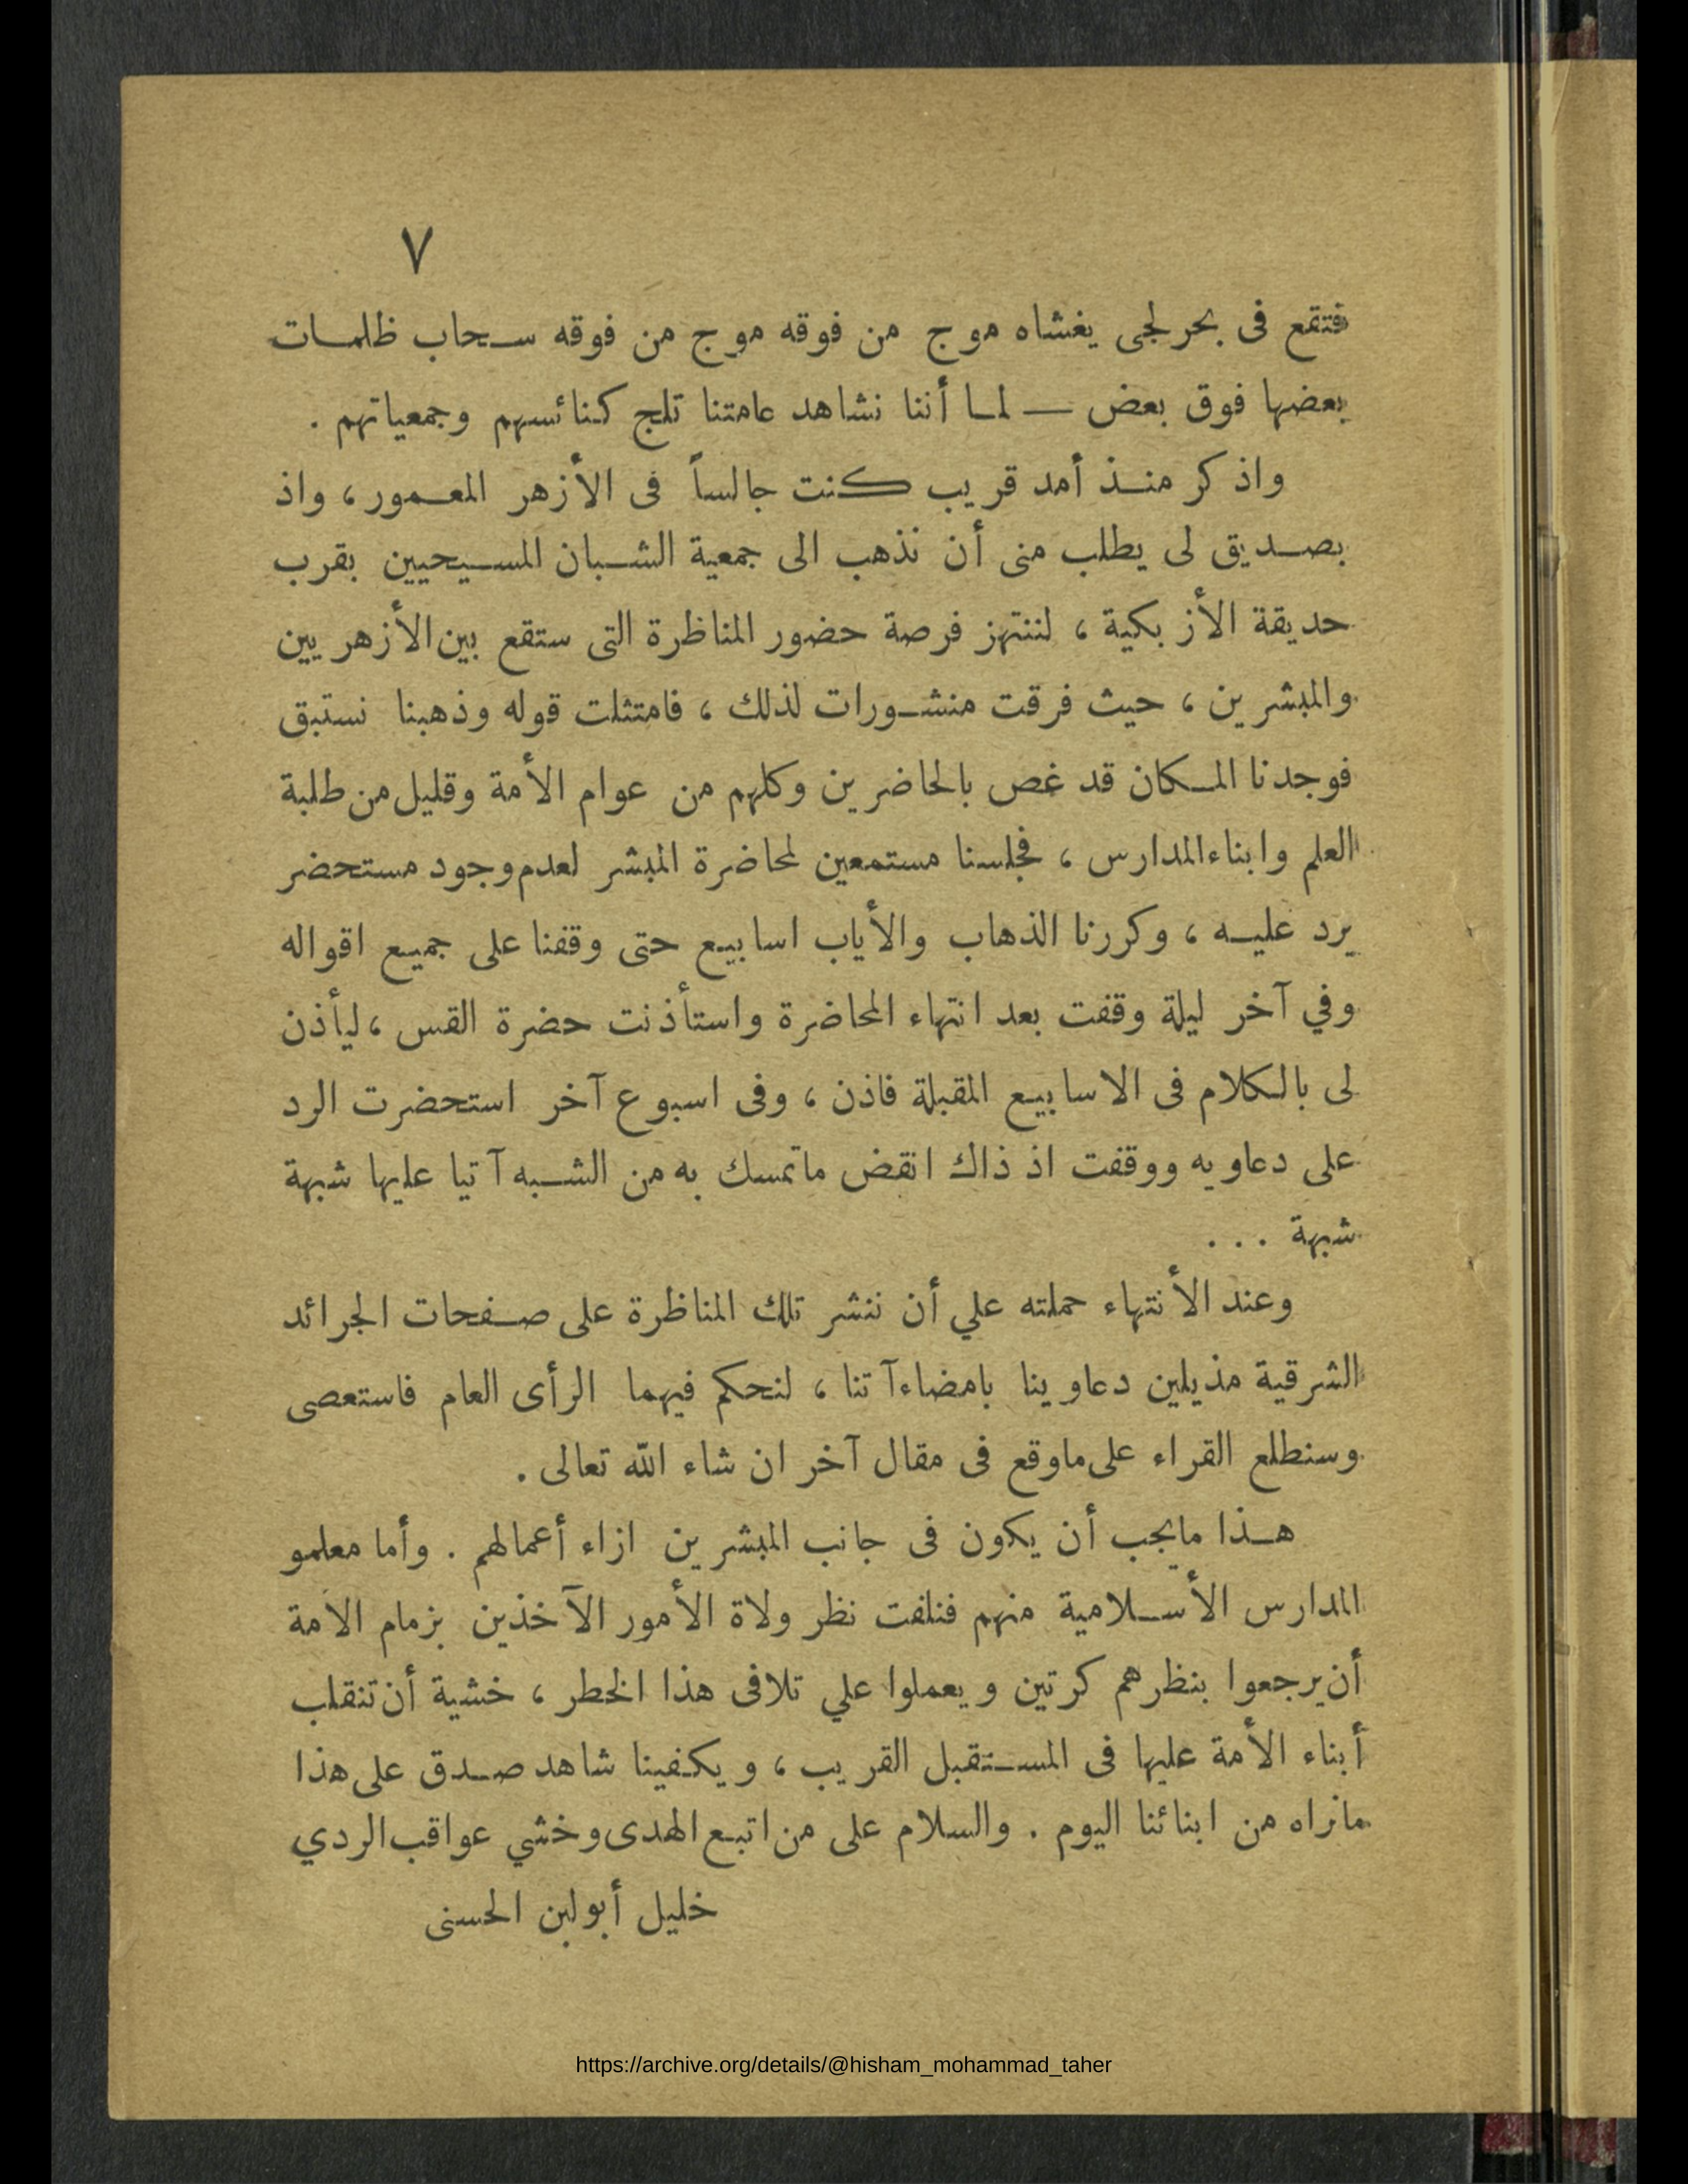 ٧
فتقع فى بحر لجى يغشاه موج من فوقه موج من فوقه سحاب ظلمات
بعضها فوق بعض — لما أننا نشاهد عامتنا تلج كنائسهم وجمعياتهم .
واذكر منذ أمد قريب كنت جالساً فى الأزهر المعمور، واذ
بصديق لى يطلب منى أن نذهب الى جمعية الشبان المسيحيين بقرب
حديقة الأزبكية ، لننتهز فرصة حضور المناظرة التى ستقع بين الأزهريين
والمبشرين ، حيث فرقت منشورات لذلك ، فامتثلت قوله وذهبنا نستبق
فوجدنا المكان قد غص بالحاضرين وكلهم من عوام الأمة وقليل من طلبة
العلم وابناء المدارس ، فجلسنا مستمعين لمحاضرة المبشر لعدم وجود مستحضر
يرد عليه ، وكررنا الذهاب والأياب اسابيع حتى وقفنا على جميع اقواله
وفي آخر ليلة وقفت بعد انتهاء المحاضرة واستأذنت حضرة القس ، ليأذن
لى بالكلام فى الاسابيع المقبلة فاذن ، وفى اسبوع آخر استحضرت الرد
على دعاويه ووقفت اذ ذاك انقض ماتمسك به من الشبه آتيا عليها شبهة
شبهة . . .
وعند الأنتهاء حملته علي أن ننشر تلك المناظرة على صفحات الجرائد
الشرقية مذيلين دعاوينا بامضاءآتنا ، لنحكم فيهما الرأى العام فاستعصى
وسنطلع القراء على ماوقع فى مقال آخر ان شاء الله تعالى .
هذا مايجب أن يكون فى جانب المبشرين ازاء أعمالهم . وأما معلمو
المدارس الأسلامية منهم فنلفت نظر ولاة الأمور الآخذين بزمام الامة
أن يرجعوا بنظرهم كرتين ويعملوا علي تلافى هذا الخطر ، خشية أن تنقلب
أبناء الأمة عليها فى المستقبل القريب ، ويكفينا شاهد صدق على هذا
مانراه من ابنائنا اليوم . والسلام على من اتبع الهدى وخشي عواقب الردي
خليل أبولبن الحسنى
https://archive.org/details/@hisham_mohammad_taher